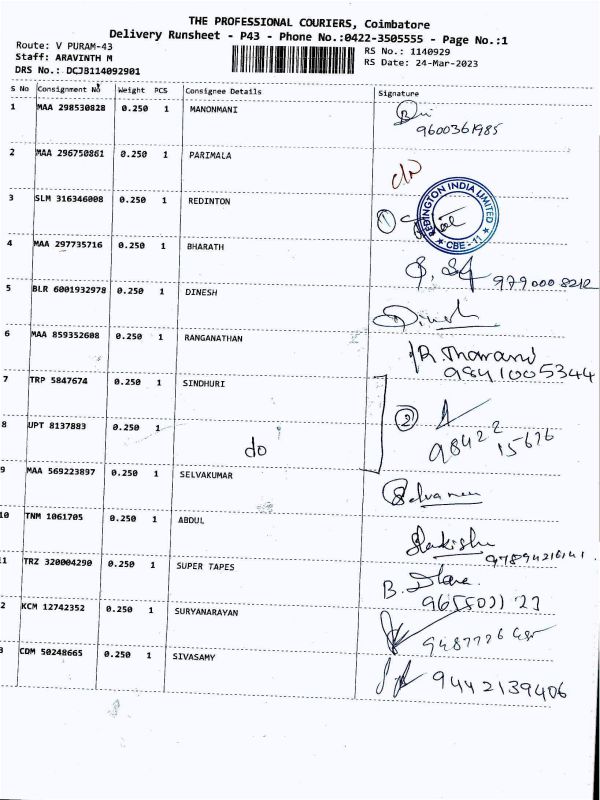 THE PROFESSIONAL COURIERS, Coimbatore
Delivery Runsheet - P43 - Phone No.:0422-3505555 - Page No.:1
Route: V PURAM-43
RS No.: 1140929
Staff: ARAVINTH M
RS Date: 24-Mar-2023
DRS No.: DCJB114092901
S No Consignment No Weight PCS Consignee Details Signature
1 MAA 298530828 0.250 1 MANONMANI
9600361985
2 MAA 296750861 0.250 1 PARIMALA
3 SLM 316346008 0.250 1 REDINTON
1
REDINGTON INDIA LIMITED
★ CBE - 11 ★
4 MAA 297735716 0.250 1 BHARATH
9790008212
5 BLR 6001932978 0.250 1 DINESH
Dinesh
6 MAA 859352608 0.250 1 RANGANATHAN
9841005344
7 TRP 5847674 0.250 1 SINDHURI
2
8 UPT 8137883 0.250 1 do
98422
15676
9 MAA 569223897 0.250 1 SELVAKUMAR
10 TNM 1061705 0.250 1 ABDUL
11 TRZ 320004290 0.250 1 SUPER TAPES
2 KCM 12742352 0.250 1 SURYANARAYAN
3 CDM 50248665 0.250 1 SIVASAMY
9442139406